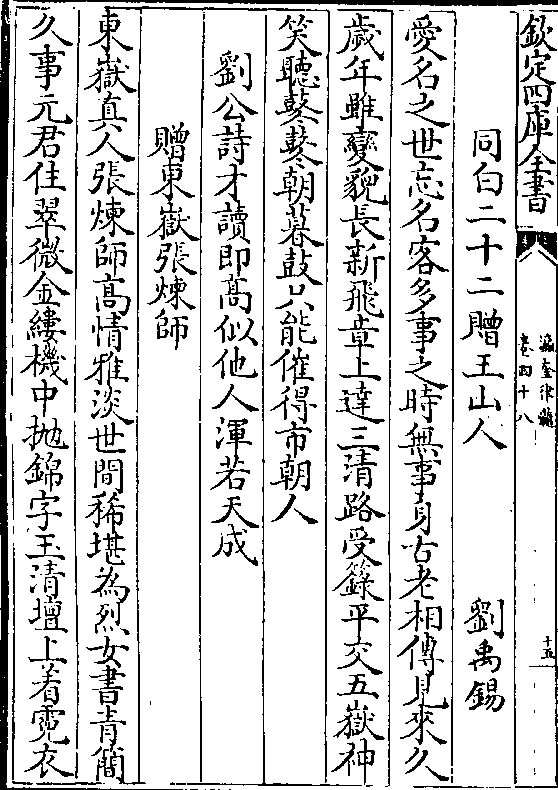 欽定四庫全書
瀛奎律髓
卷四十八
十五
同白二十二贈王山人 劉禹錫
愛名之世忘名客多事之時無事身古老相傳見來久
歲年雖變貌長新飛章上達三清路受籙平交五嶽神
笑聽鼕鼕朝暮鼓只能催得市朝人
劉公詩才讀即髙似他人渾若天成
贈東嶽張煉師
東嶽真人張煉師髙情雅淡世間稀堪為烈女書青簡
久事元君住翠微金縷機中抛錦字玉清壇上着霓衣